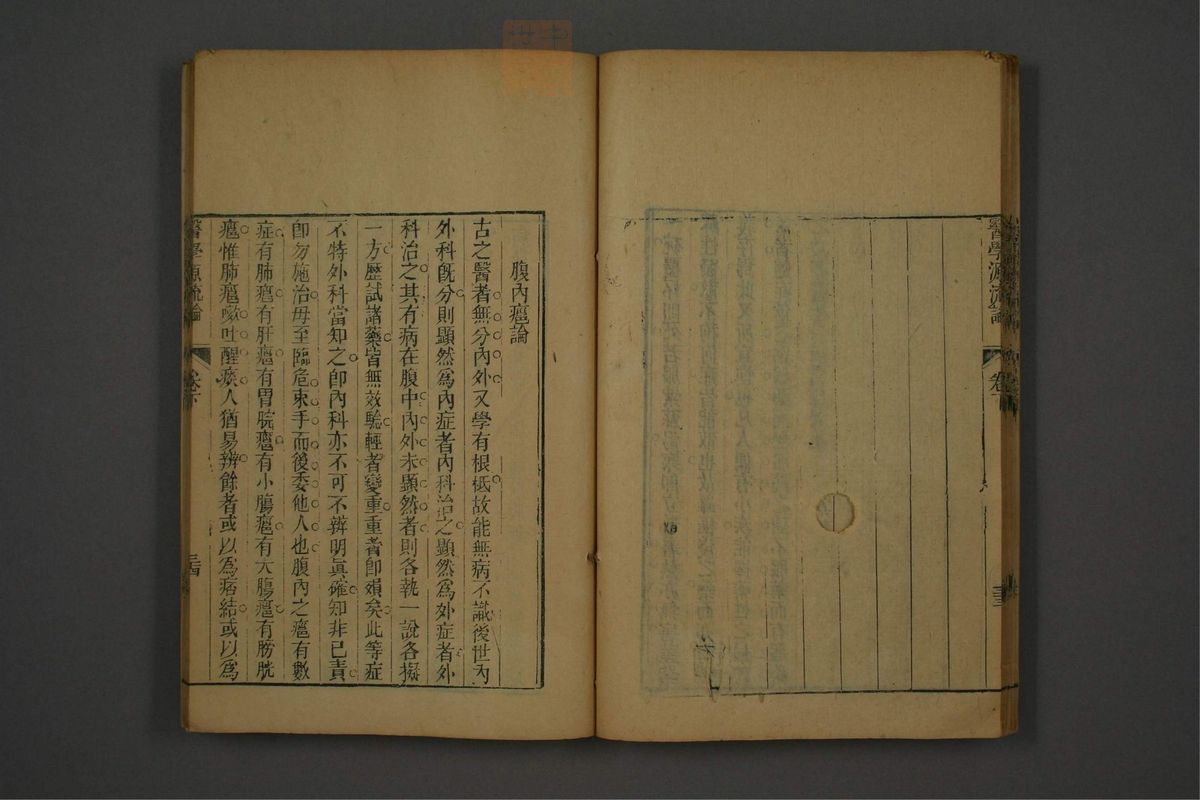 醫學源流論
卷下
三三
腹內癰論
古之醫者無分內外又學有根柢故能無病不識後世內
外科旣分則顯然爲內症者內科治之顯然爲外症者外
科治之其有病在腹中內外未顯然者則各執一說各擬
一方歷試諸藥皆無效驗輕者變重重者卽殞矣此等症
不特外科當知之卽內科亦不可不辨明眞確知非己責
卽勿施治毋至臨危束手而後委他人也腹內之癰有數
症有肺癰有肝癰有胃脘癰有小腸癰有大腸癰有膀胱
癰惟肺癰咳吐醒痰人猶易辨餘者或以爲痞結或以爲
醫學源流論
卷下
三四